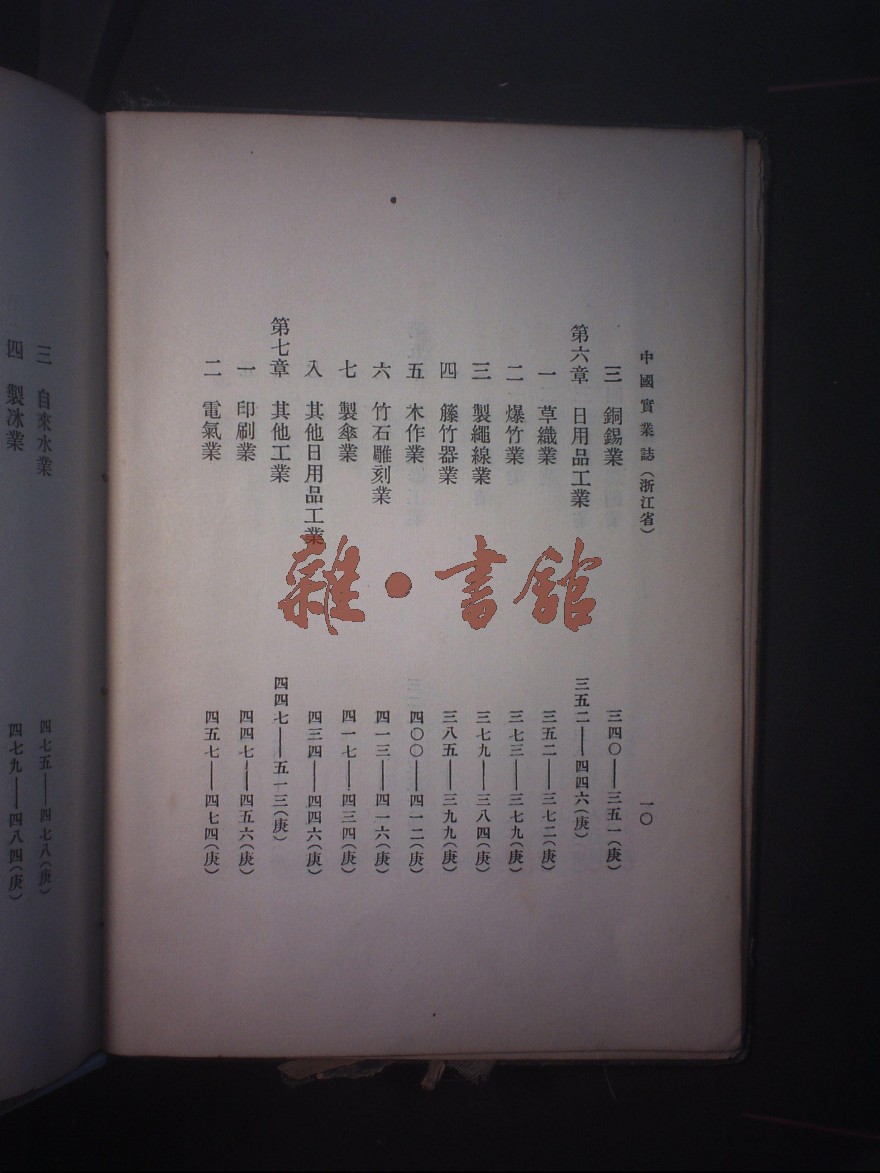 中國實業誌(浙江省)
一〇
三 銅錫業 三四〇——三五一(庚)
第六章 日用品工業 三五二——四四六(庚)
一 草織業 三五二——三七二(庚)
二 爆竹業 三七三——三七九(庚)
三 製繩線業 三七九——三八四(庚)
四 籐竹器業 三八五——三九九(庚)
五 木作業 四〇〇——四一二(庚)
六 竹石雕刻業 四一三——四一六(庚)
七 製傘業 四一七——四三四(庚)
八 其他日用品工業 四三四——四四六(庚)
第七章 其他工業 四四七——五一三(庚)
一 印刷業 四四七——四五六(庚)
二 電氣業 四五七——四七四(庚)
三 自來水業 四七五——四七八(庚)
四 製冰業 四七九——四八四(庚)
雜·書館